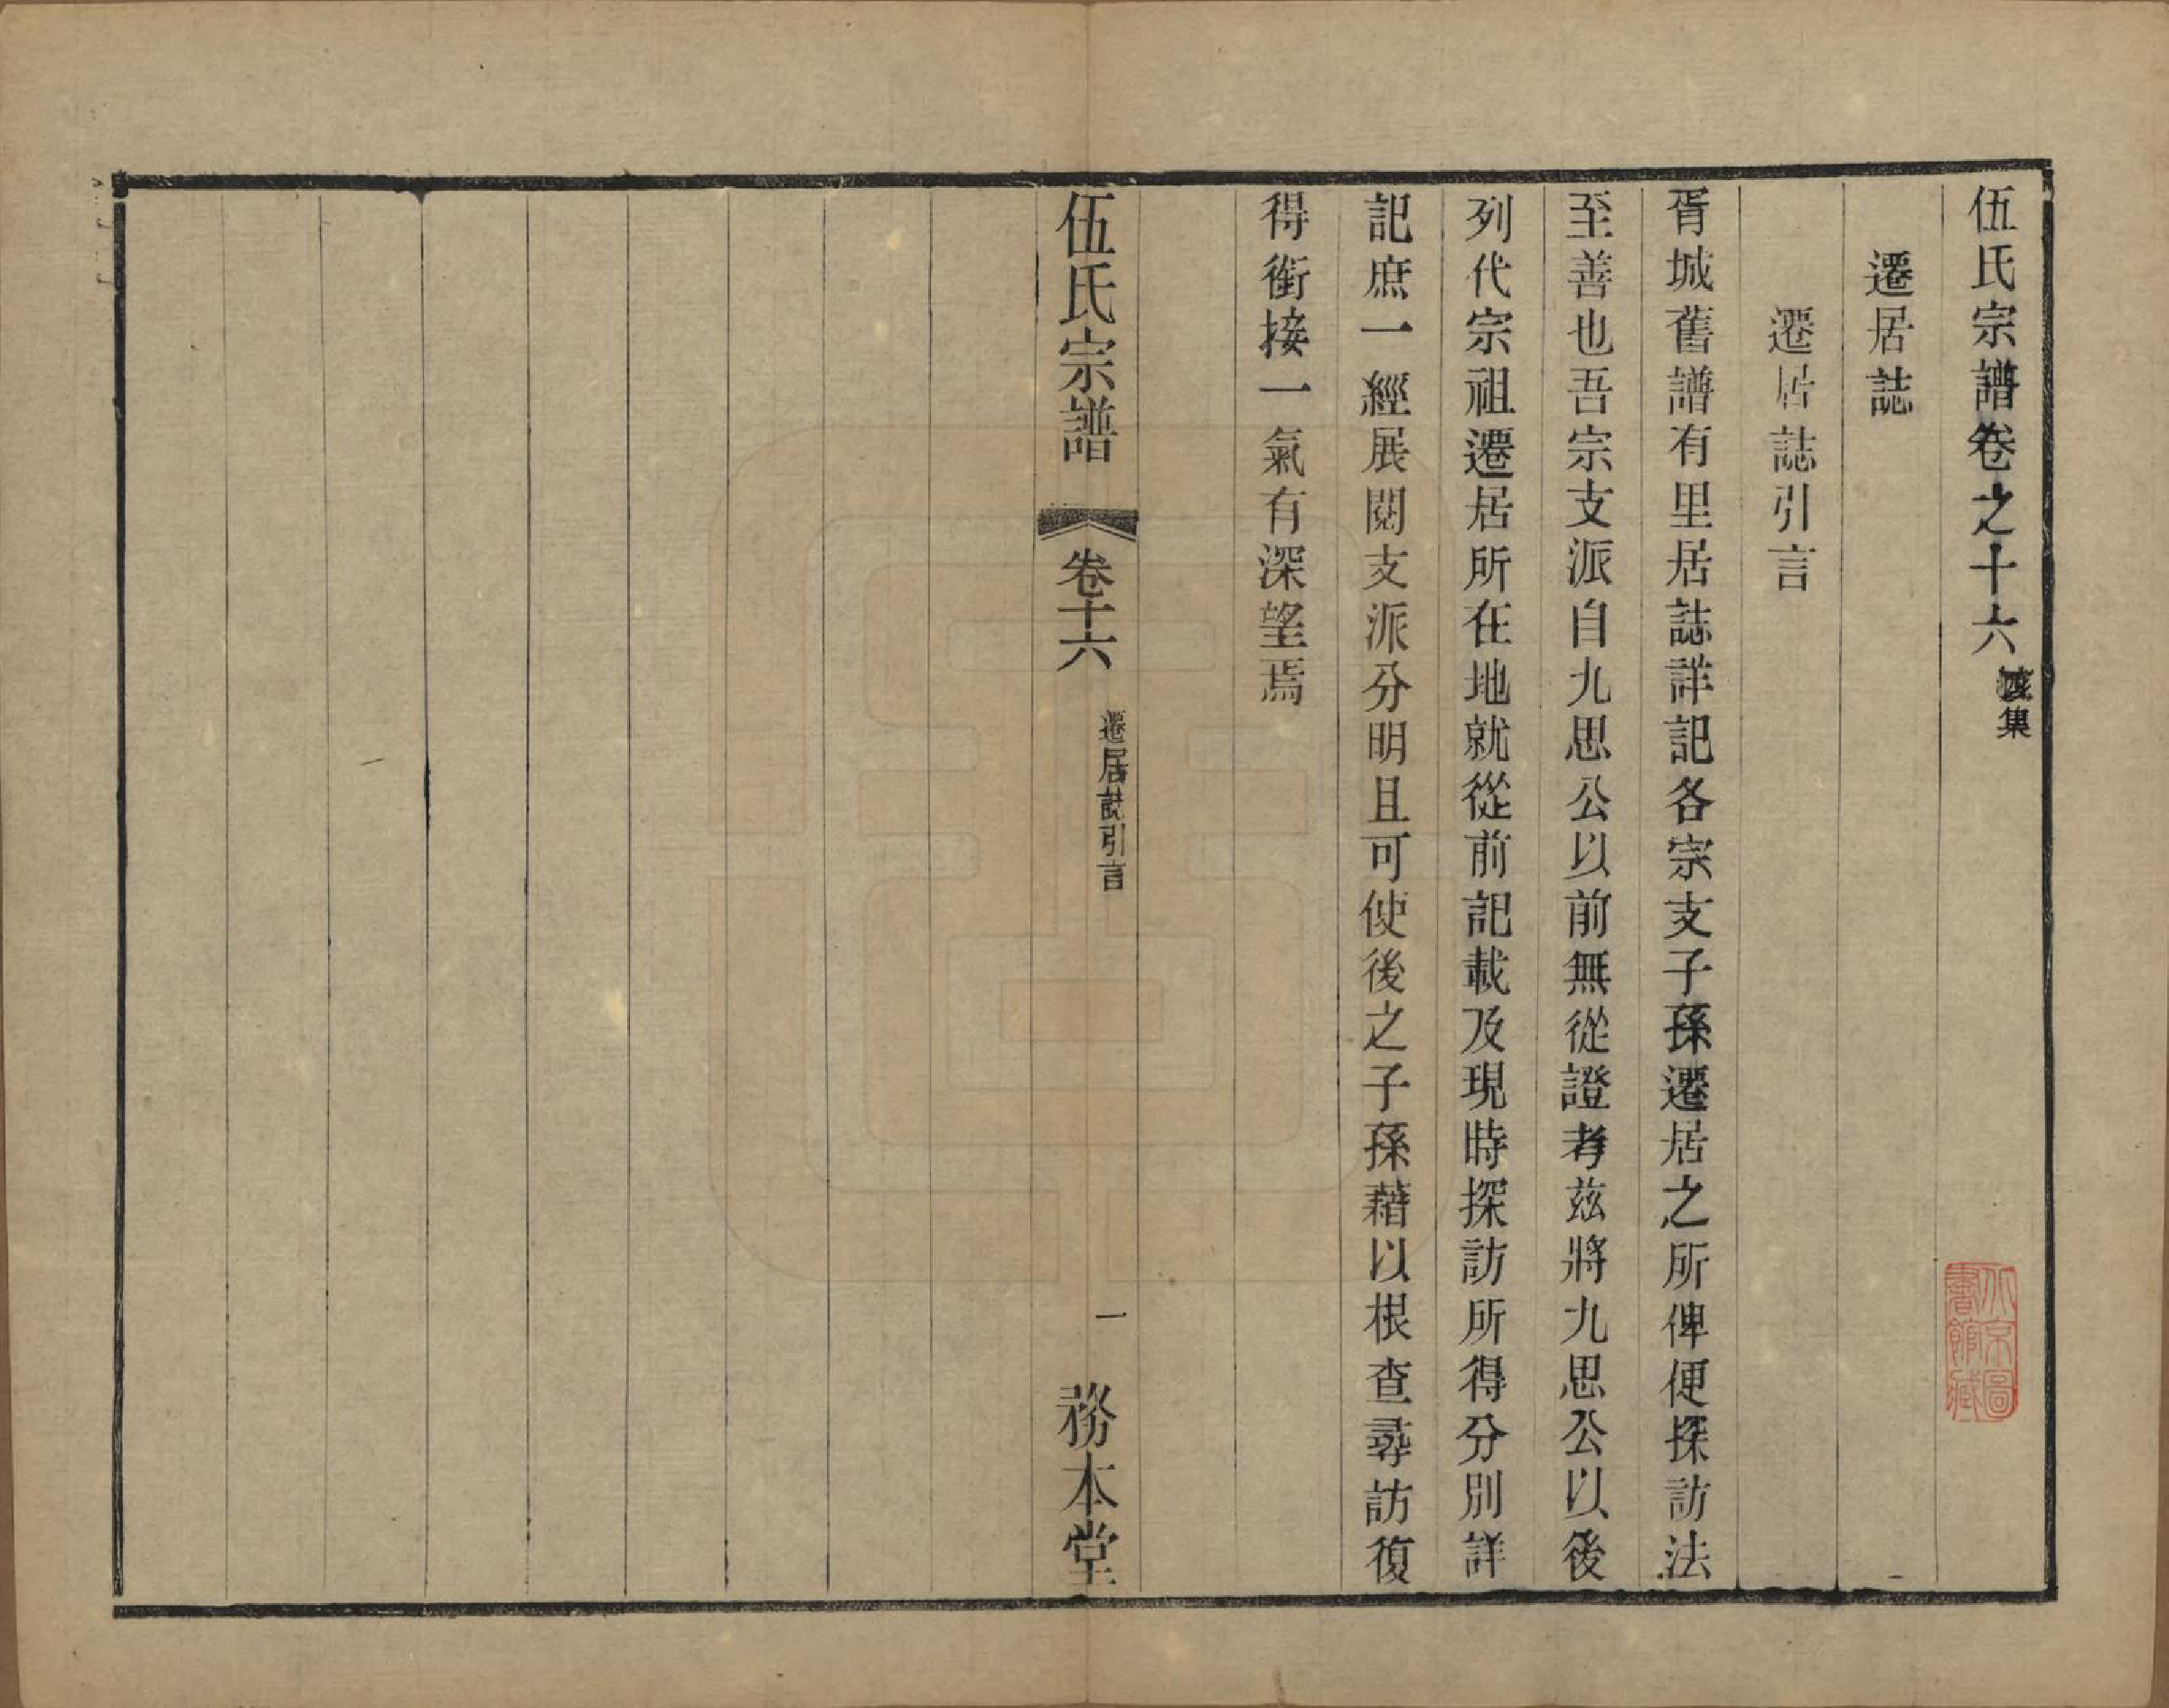 伍氏宗譜卷之十六
集
遷居誌
遷居誌引言
胥城舊譜有里居誌詳記各宗支子孫遷居之所俾便探訪法
至善也吾宗支派自九思公以前無從證考茲將九思公以後
列代宗祖遷居所在地就從前記載及現時探訪所得分別詳
記庶一經展閱支派分明且可使後之子孫藉以根查尋訪復
得銜接一氣有深望焉
伍氏宗譜
卷十六
遷居誌引言
一
務本堂
北京圖
書館藏